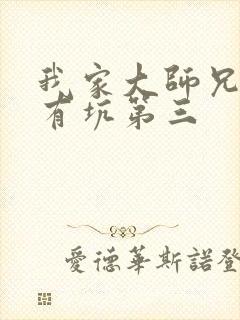 我家大師兄
有坑第三
愛德華斯諾登